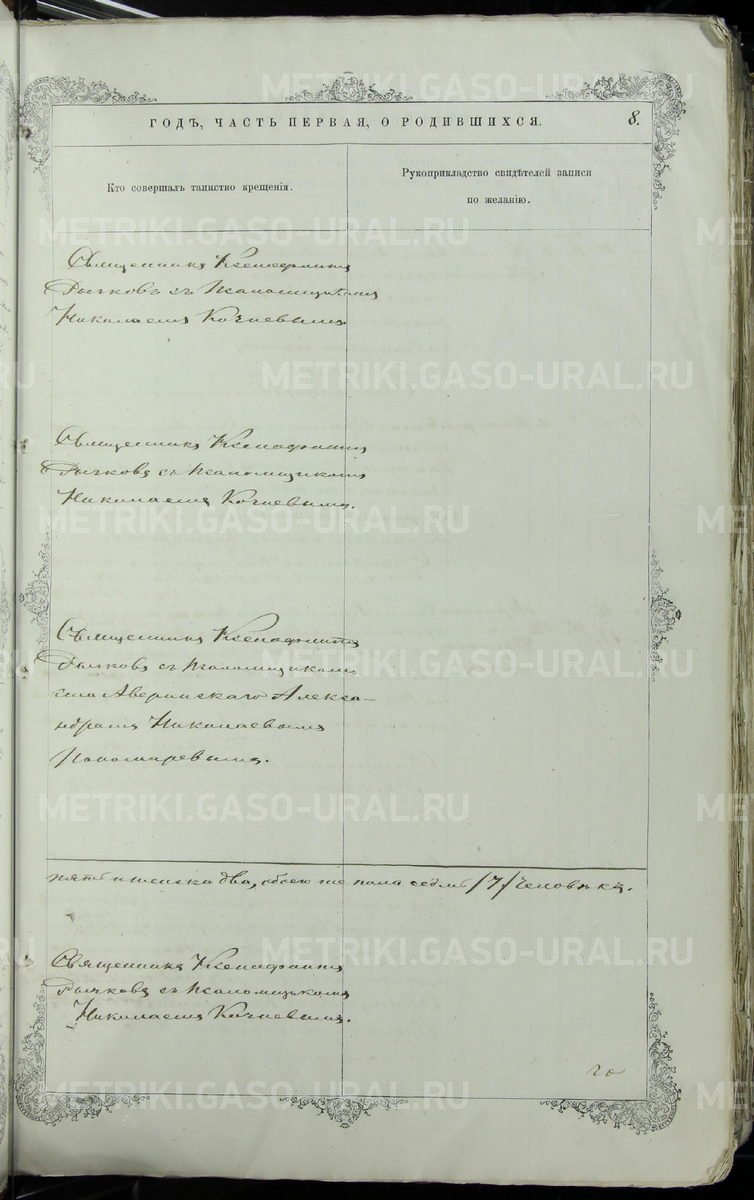 METRIKI.GASO-URAL.RU
ГОДЪ, ЧАСТЬ ПЕРВАЯ, О РОДИВШИХСЯ.
8.
Кто совершалъ таинство крещенія.
Рукоприкладство свидѣтелей записи
по желанію.
Священникъ Ксенофонтъ
Рычковъ съ Псаломщикомъ
Николаемъ Кочневымъ.
Священникъ Ксенофонтъ
Рычковъ съ Псаломщикомъ
Николаемъ Кочневымъ.
Священникъ Ксенофонтъ
Рычковъ съ Псаломщикомъ
села Аверинскаго Алекса-
ндромъ Николаевымъ
Пономаревымъ.
пять и женска два, обоего же пола седмь /7/ Человѣкъ.
Священникъ Ксенофонтъ
Рычковъ съ Псаломщикомъ
Николаемъ Кочневымъ.